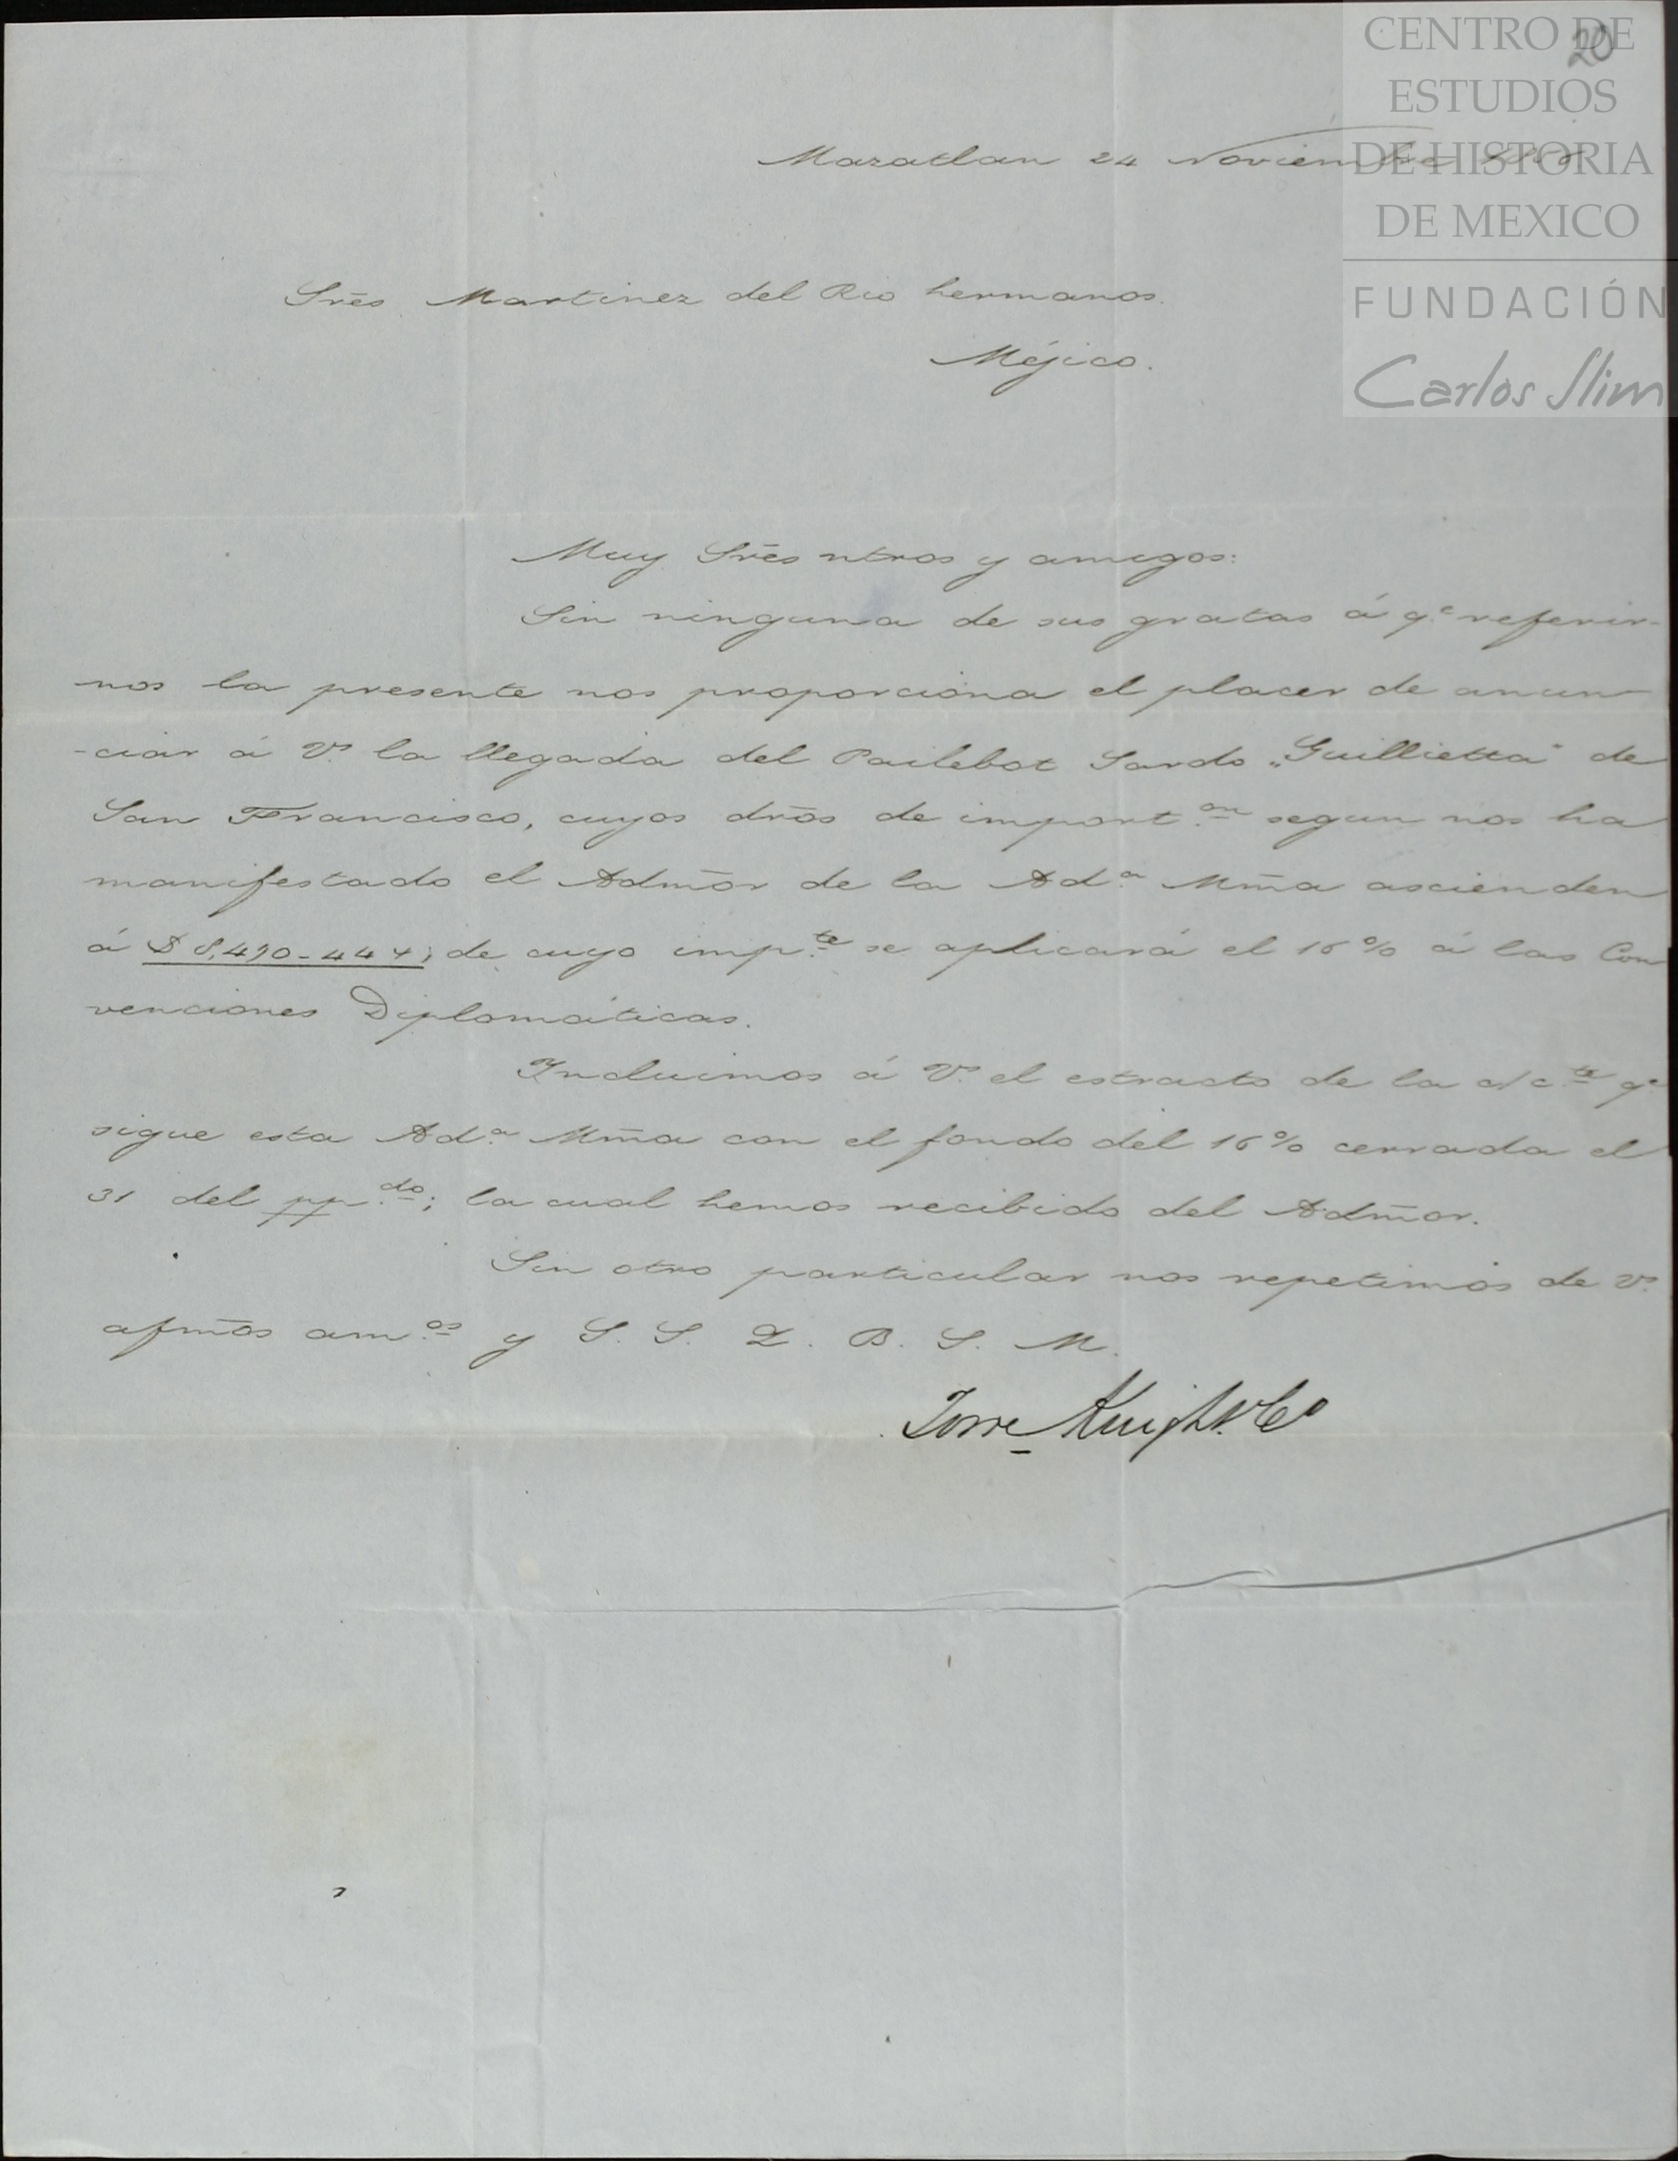 20
CENTRO DE
ESTUDIOS
DE HISTORIA
DE MEXICO
FUNDACIÓN
Carlos Slim
Mazatlan 24 Noviembre
Sres Martinez del Rio hermanos.
Méjico.
Muy Sres ntros y amigos:
Sin ninguna de sus gratas á q.e referir-
nos la presente nos proporciona el placer de anun-
-ciar á V.s la llegada del Pailebot Sardo „Guillietta" de
San Francisco, cuyos drôs de import.on segun nos ha
manifestado el Admõr de la Ad.a Mm̃a ascienden
á $ 8,490-44 de cuyo imp.te se aplicará el 16% á las Con
venciones Diplomáticas.
Incluimos á V.s el estracto de la c/c.te q.e
sigue esta Ad.a Mm̃a con el fondo del 16% cerrada el
31 del pp.do; la cual hemos recibido del Admõr.
Sin otro particular nos repetimos de V.s
afmõs am.os y S. S. Q. B. S. M.
Torre Knight & Co